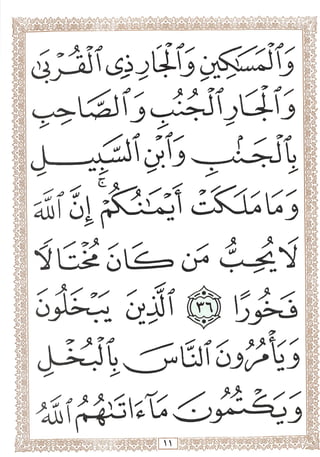 وَٱلْمَسَٰكِينِ وَٱلْجَارِ ذِى ٱلْقُرْبَىٰ
وَٱلْجَارِ ٱلْجُنُبِ وَٱلصَّاحِبِ
بِٱلْجَنۢبِ وَٱبْنِ ٱلسَّبِيلِ
وَمَا مَلَكَتْ أَيْمَٰنُكُمْ ۗ إِنَّ ٱللَّهَ
لَا يُحِبُّ مَن كَانَ مُخْتَالًا
فَخُورًا ٣٦ ٱلَّذِينَ يَبْخَلُونَ
وَيَأْمُرُونَ ٱلنَّاسَ بِٱلْبُخْلِ
وَيَكْتُمُونَ مَآ ءَاتَىٰهُمُ ٱللَّهُ
١١